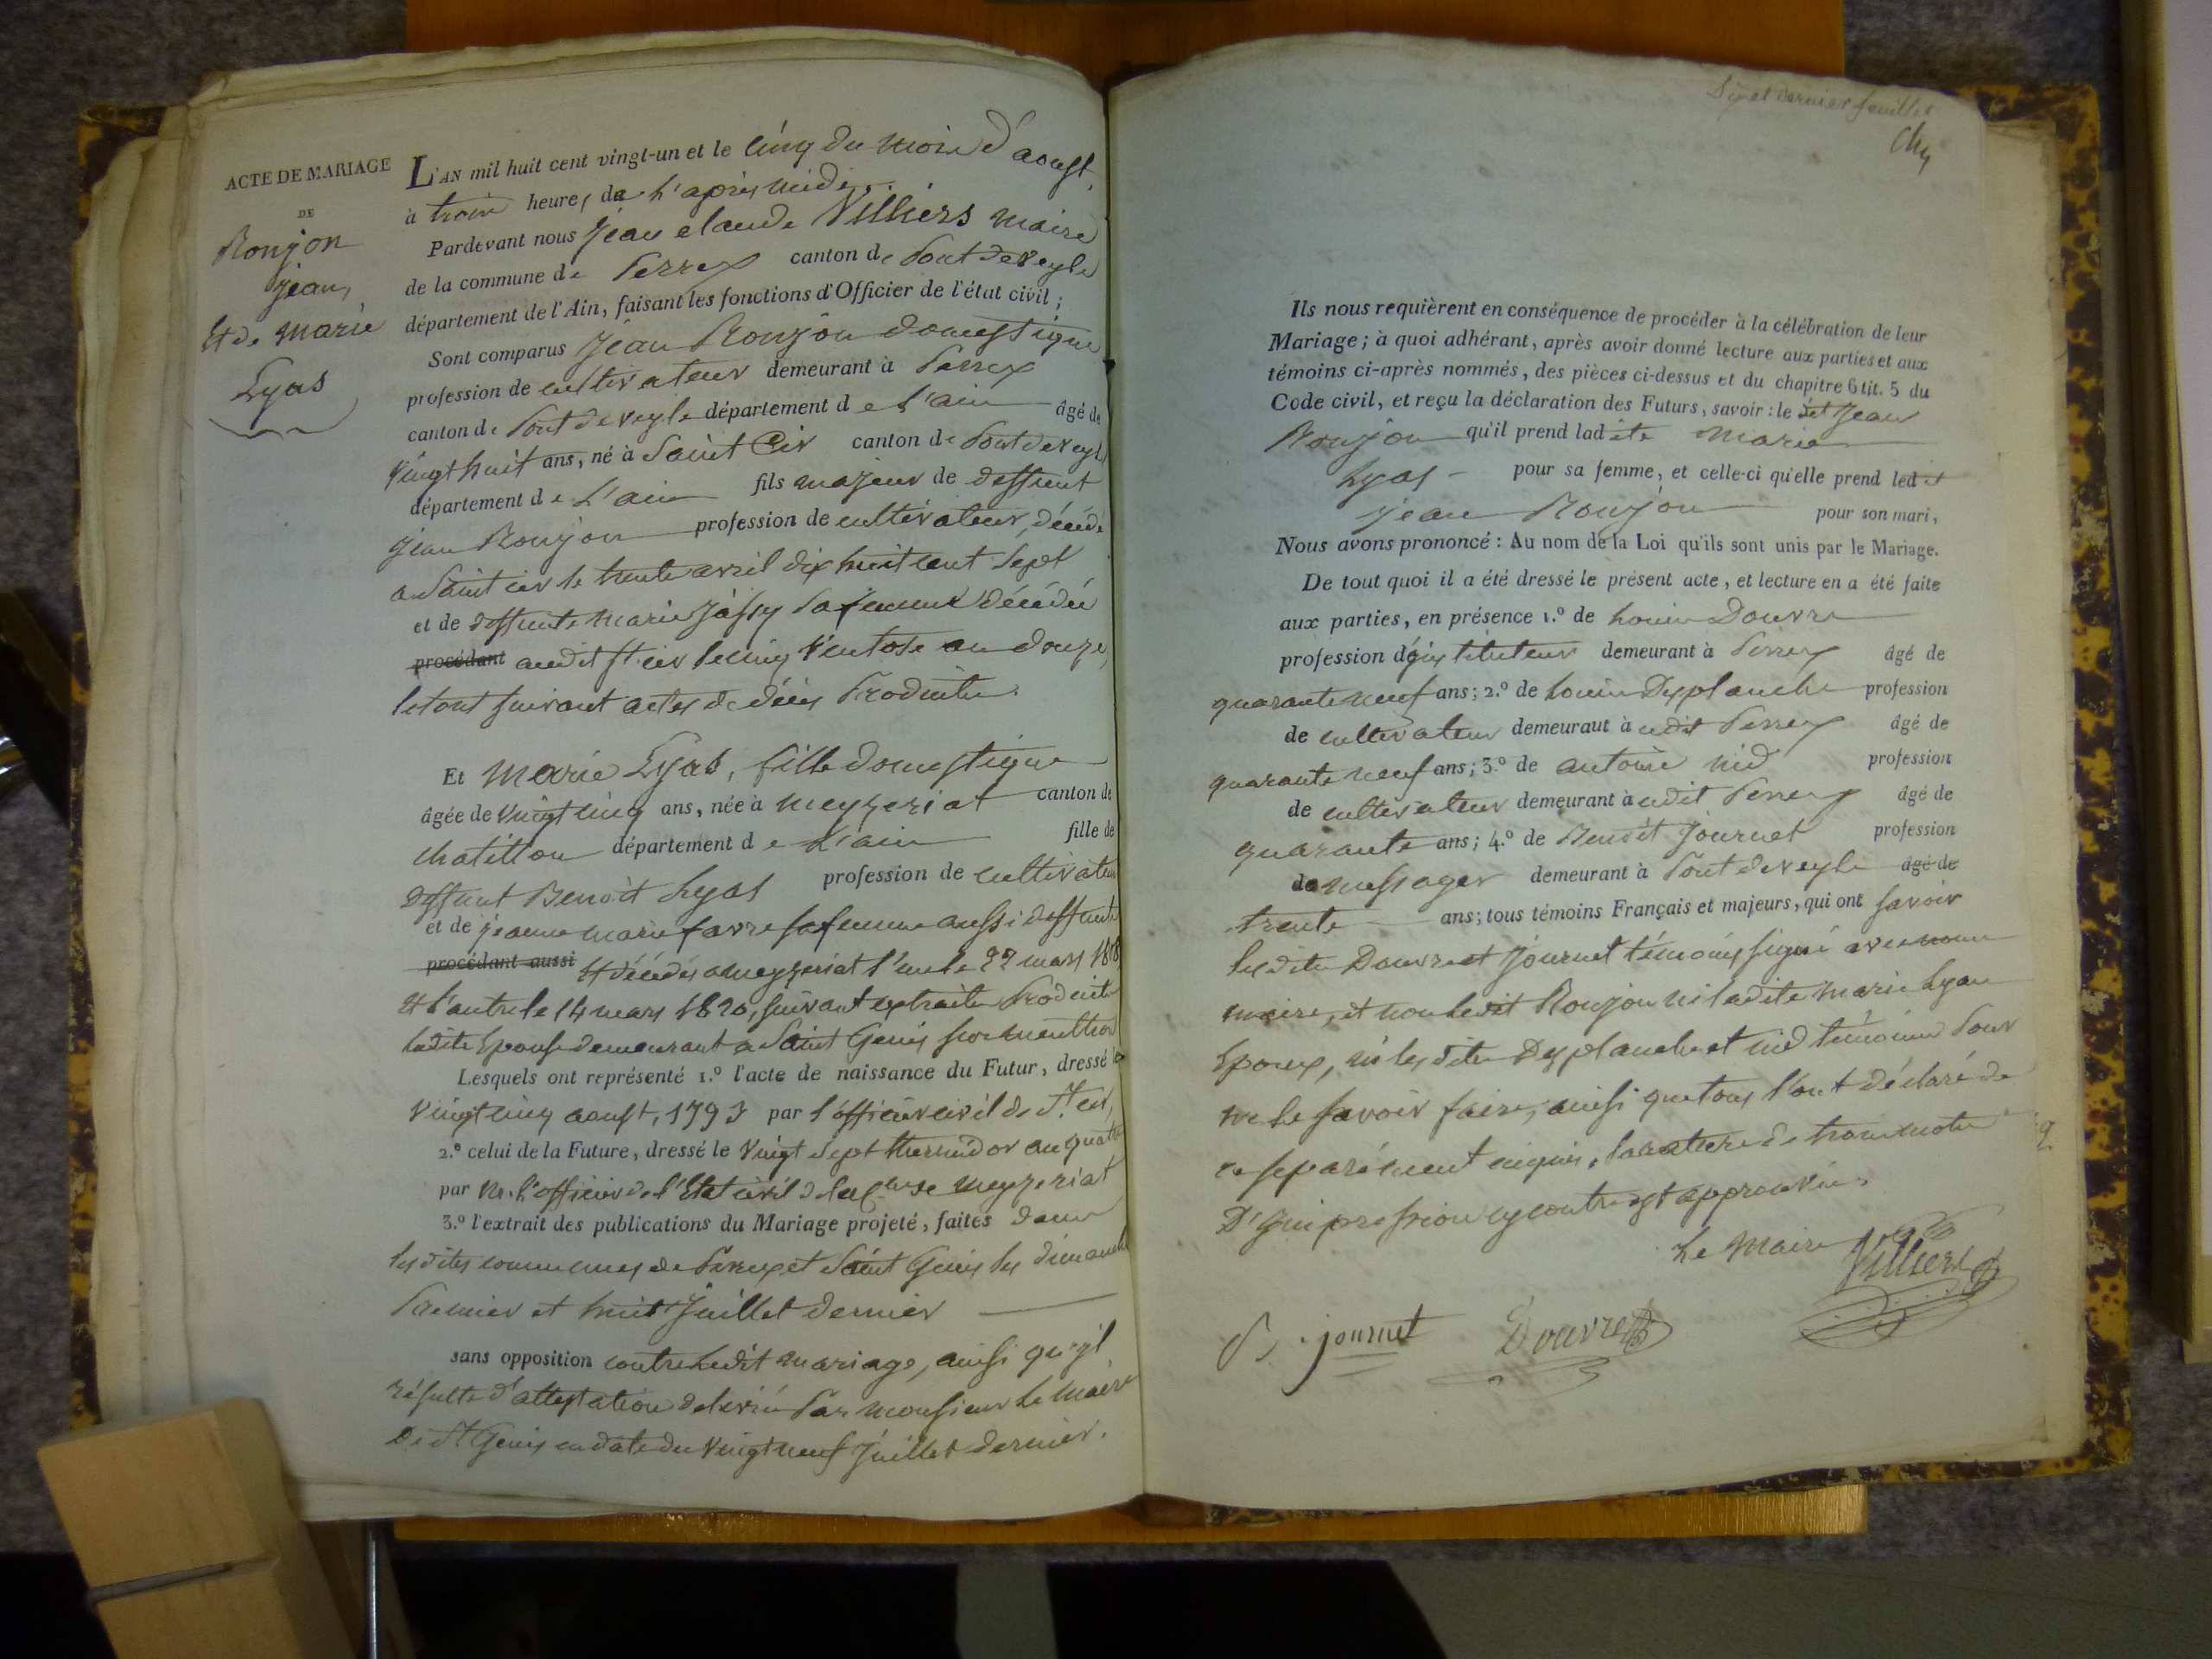 ACTE DE MARIAGE
DE
Ronjon
jean,
Et de Marie
Lyas
L'AN mil huit cent vingt-un et le cinq du mois d'aoust,
à trois heures de l'après midi.
Pardevant nous Jean claude Villiers maire
de la commune de Perrex canton de Pontdeveyle
département de l'Ain, faisant les fonctions d'Officier de l'état civil ;
Sont comparus Jean Ronjon domestique
profession de cultivateur demeurant à Perrex
canton de Pontdeveyle département de l'ain âgé de
vingt huit ans, né à Saint Cir canton de Pontdeveyle
département de L'ain fils majeur de deffunt
jean Ronjon profession de cultivateur, décédé
a Saint cir le trente avril dix huit cent sept
et de deffunte marie Jassy sa femme décédée
procédant audit St cir le cinq Ventose an douze,
le tout suivant actes de décès Produits.
Et Marie Lyas, fille domestique
âgée de vingt cinq ans, née à meyzeriat canton de
chatillon département de L'ain fille de
deffunt Benoit Lyas profession de cultivateur
et de jeanne marie favre sa femme aussi deffunte
procédant aussi et décédés a meyzeriat l'un le 22 mars 1818
et l'autre le 14 mars 1820, suivant extraits Produits
ladite Epouse demeurant a Saint Genis sur menthon
Lesquels ont représenté 1.º l'acte de naissance du Futur, dressé le
vingt cinq aoust, 1793 par l'officier civil de St. cir,
2.º celui de la Future, dressé le vingt sept thermidor an quatre
par Mr. l'officier de l'Etat civil de la Cne de meyzeriat
3.º l'extrait des publications du Mariage projeté, faites dans
les dites communes de Perrex et Saint Genis les dimanche
Premier et huit Juillet dernier
sans opposition contre ledit mariage, ainsi qu'yl
résulte d'attestation delivrée Par monsieur le Maire
De St Genis en date du vingt neuf Juillet dernier.
et dernier feuillet
Ils nous requièrent en conséquence de procéder à la célébration de leur
Mariage ; à quoi adhérant, après avoir donné lecture aux parties et aux
témoins ci-après nommés, des pièces ci-dessus et du chapitre 6 tit. 5 du
Code civil, et reçu la déclaration des Futurs, savoir : le dit Jean
Ronjon qu'il prend ladite Marie
Lyas pour sa femme, et celle-ci qu'elle prend ledit
jean Ronjon pour son mari,
Nous avons prononcé : Au nom de la Loi qu'ils sont unis par le Mariage.
De tout quoi il a été dressé le présent acte, et lecture en a été faite
aux parties, en présence 1.º de Louis Douvre
profession d'ynstituteur demeurant à Perrex âgé de
quarante neuf ans ; 2.º de Louis Desplanche profession
de cultivateur demeuraut à udit Perrex âgé de
quarante neuf ans ; 3.º de antoine nid profession
de cultivateur demeurant à udit Perrex âgé de
quarante ans ; 4.º de Benoit Journet profession
de messager demeurant à Pontdeveyle âgé de
trente ans ; tous témoins Français et majeurs, qui ont savoir
lesdits Douvre et Journet témoins signé avec nous
maire, et non ledit Ronjon ni ladite marie Lyas
Epoux, ni lesdits Desplanche et nid témoins Pour
ne le savoir faire, ainsi que tous l'ont déclaré de
ce separément enquis, la rature de trois mots
D'ympression cy contre est approuvée.
Le Maire Villiers
B. journet Douvre